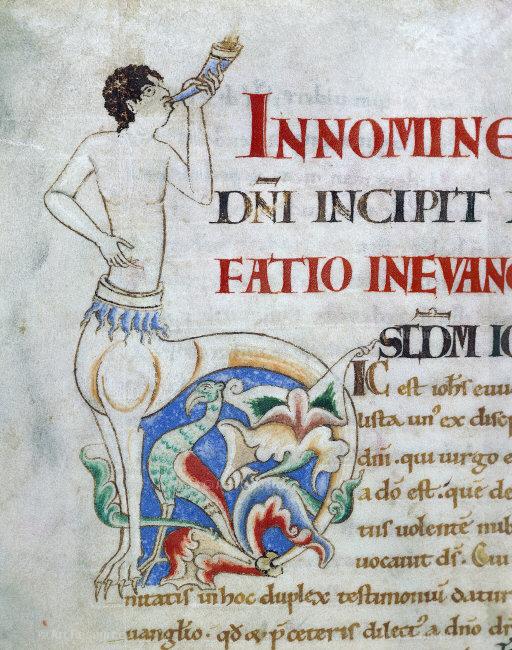 INNOMINE
DÑI INCIPIT
FATIO INEVANG
SCDM IO
IC est ioh̄s euu
iusta un' ex discip
dn̄i · qui uirgo e
a dō est · que de
tiis uolente nub
uocauit ds̄ · Cui
nitatis in hoc duplex testimoniū datur
uanglio · qd̄ &